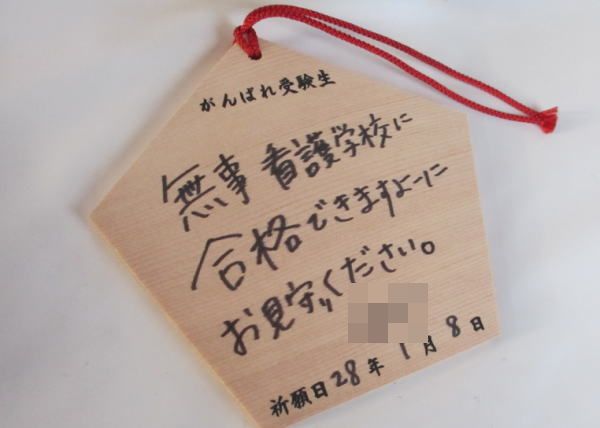 がんばれ受験生
無事看護学校に
合格できますよーに
お見守りください。
祈願日28年1月8日